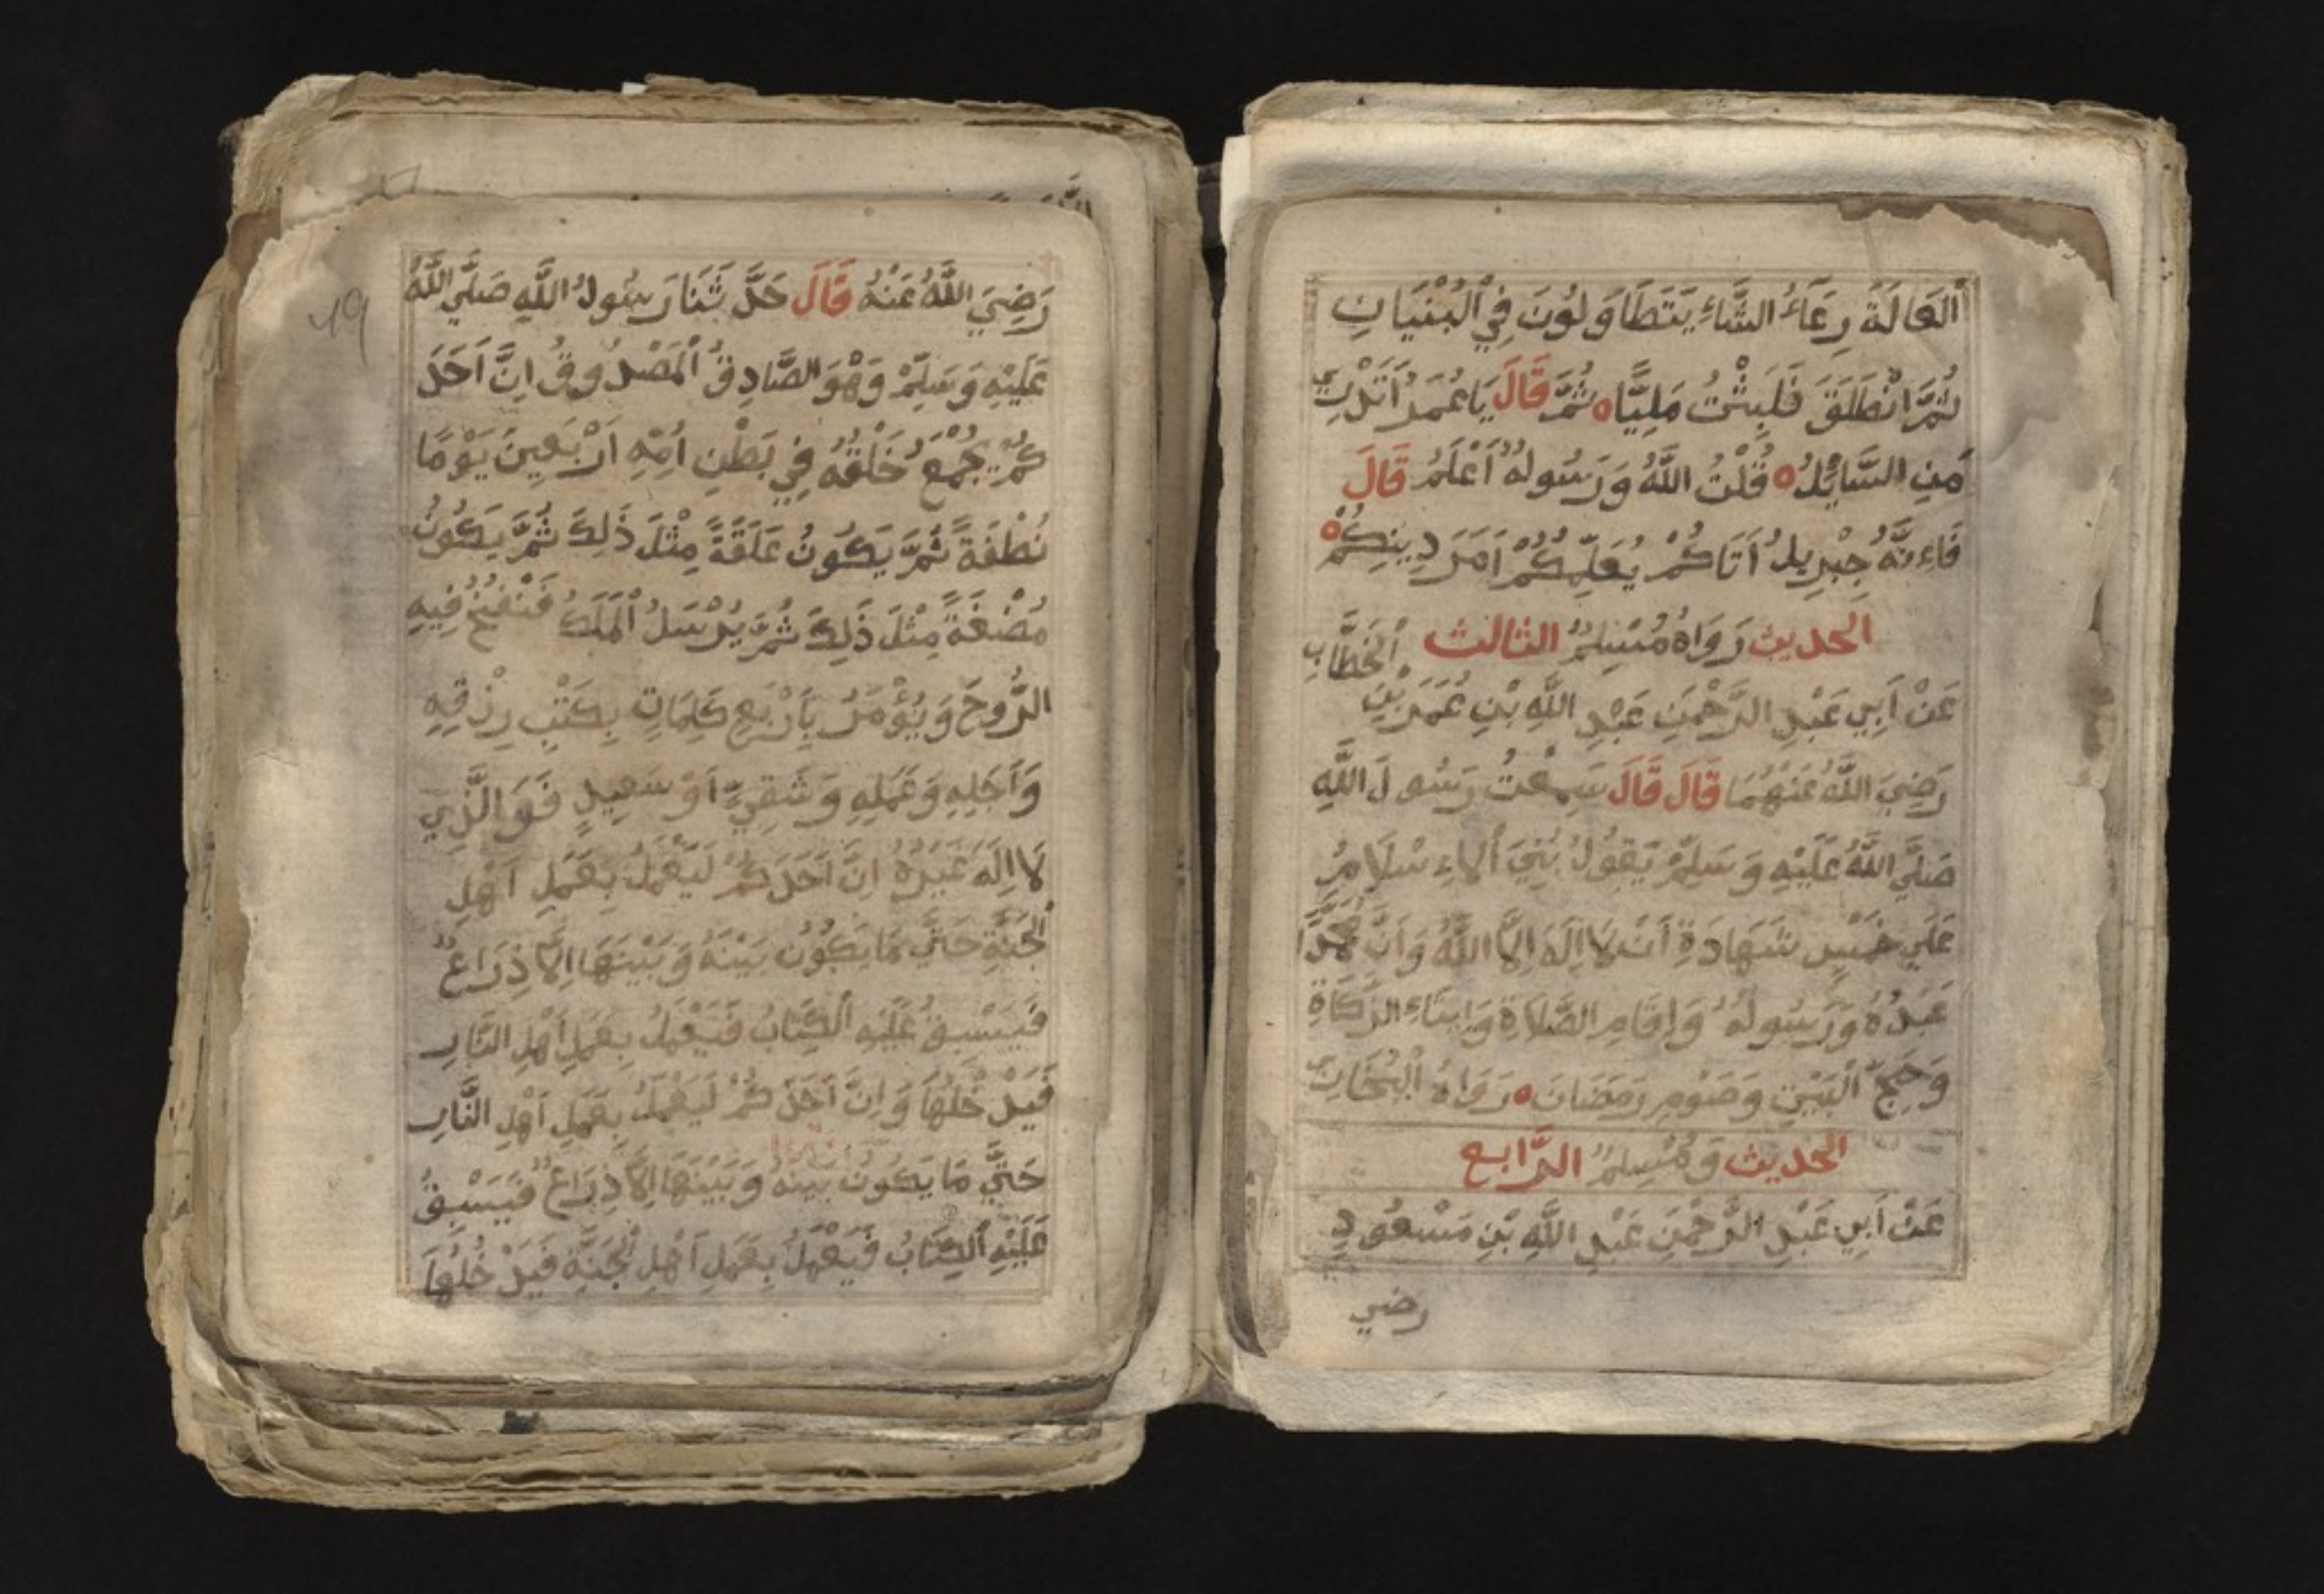 اَلْعَالَةَ رِعَاءَ الشَّاءِ يَتَطَاوَلُونَ فِي الْبُنْيَانِ
ثُمَّ انْطَلَقَ فَلَبِثْتُ مَلِيًّا ه ثُمَّ قَالَ يَا عُمَرُ اَتَدْرِي
مَنِ السَّائِلُ ه قُلْتُ اللَّهُ وَرَسُولُهُ اَعْلَمُ قَالَ
فَاِءنَّهُ جِبْرِيلُ اَتَاكُمْ يُعَلِّمُكُمْ اَمَرَ دِينِكُمْ ه
الحديث رَوَاهُ مُسْلِمٌ الثالث
عَنْ اَبِي عَبْدِ الرَّحْمٰنِ عَبْدِ اللَّهِ بْنِ عُمَرَ بْنِ الْخَطَّابِ
رَضِيَ اللَّهُ عَنْهُمَا قَالَ قَالَ سَمِعْتُ رَسُولَ اللَّهِ
صَلَّي اللَّهُ عَلَيْهِ وَسَلِّمْ يَقُولُ بُنِيَ الْاِءسْلَامُ
عَلَي خَمْسٍ شَهَادَةِ اَنْ لَا اِلَهَ اِلَّا اللَّهُ وَاَنَّ مُحَمَّدًا
عَبْدُهُ وَرَسُولُهُ وَاِقَامِ الصَّلَاةِ وَاِيتَاءِ الزَّكَاةِ
وَحَجِّ الْبَيْتِ وَصَوْمِ رَمَضَانَ ه رَوَاهُ الْبُخَارِي
الحديث وَمُسْلِمٌ الرَّابع
عَنْ اَبِي عَبْدِ الرَّحْمٰنِ عَبْدِ اللَّهِ بْنِ مَسْعُودٍ
رضي
٤٩
رَضِيَ اللَّهُ عَنْهُ قَالَ حَدَّثَنَا رَسُولُ اللَّهِ صَلَّي اللَّهُ
عَلَيْهِ وَسَلِّمْ وَهْوَ الصَّادِقُ الْمَصْدُوقُ اِنَّ اَحَدَ
كُمْ يُجْمَعُ خَلْقُهُ فِي بَطْنِ اُمِّهِ اَرْبَعِينَ يَوْمًا
نُطْفَةً ثُمَّ يَكُونُ عَلَقَةً مِثْلَ ذَلِكَ ثُمَّ يَكُونُ
مُضْغَةً مِثْلَ ذَلِكَ ثُمَّ يُرْسَلُ الْمَلَكُ فَنْفُخُ فِيهِ
الرُّوحَ وَيُؤْمَرُ بِاَرْبَعِ كَلِمَاتٍ بِكَتْبِ رِزْقِهِ
وَاَجَلِهِ وَعَمَلِهِ وَشَقِيٍّ اَوْ سَعِيدٍ فَوَالَّذِي
لَا اِلَهَ غَيْرُهُ اِنَّ اَحَدَكُمْ لَيَعْمَلُ بِعَمَلِ اَهْلِ
الْجَنَّةِ حَتَّي مَا يَكُونُ بَيْنَهُ وَبَيْنَهَا اِلَّا ذِرَاعٌ
فَيَسْبِقُ عَلَيْهِ الْكِتَابُ فَيَعْمَلُ بِعَمَلِ اَهْلِ النَّارِ
فَيَدْخُلُهَا وَاِنَّ اَحَدَكُمْ لَيَعْمَلُ بِعَمَلِ اَهْلِ النَّارِ
حَتَّي مَا يَكُونُ بَيْنَهُ وَبَيْنَهَا اِلَّا ذِرَاعٌ فَيَسْبِقُ
عَلَيْهِ الْكِتَابُ فَيَعْمَلُ بِعَمَلِ اَهْلِ الْجَنَّةِ فَيَدْخُلُهَا